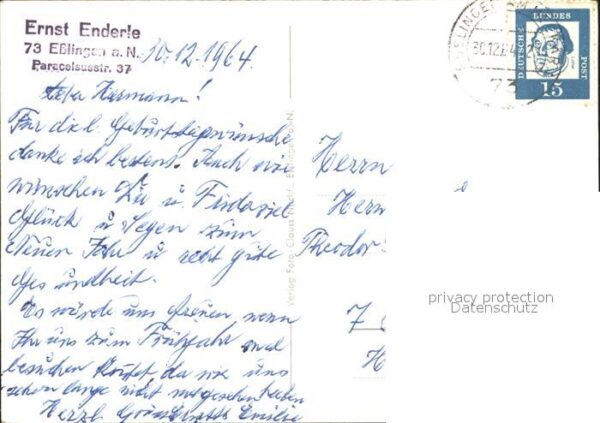 Ernst Enderle
73 Eßlingen a. N.
Paracelsusstr. 37
30.12.1964
Lieber Hermann!
Für die l. Geburtstagwünsche
danke ich bestens. Auch wir
wünschen Dir u. viel
Glück u Segen zum
Neuen Jahr u recht gute
Gesundheit.
Es würde uns freuen, wenn
Ihr uns zum Frühjahr mal
besuchen da wir uns
schon lange nicht mehr gesehen haben
Herzl. Emilie
Verlag Foto-Clauss
Herrn
Herm
Theodor
7
H
30.12.64
73
DEUTSCHE
BUNDES
POST
15
privacy protection
Datenschutz